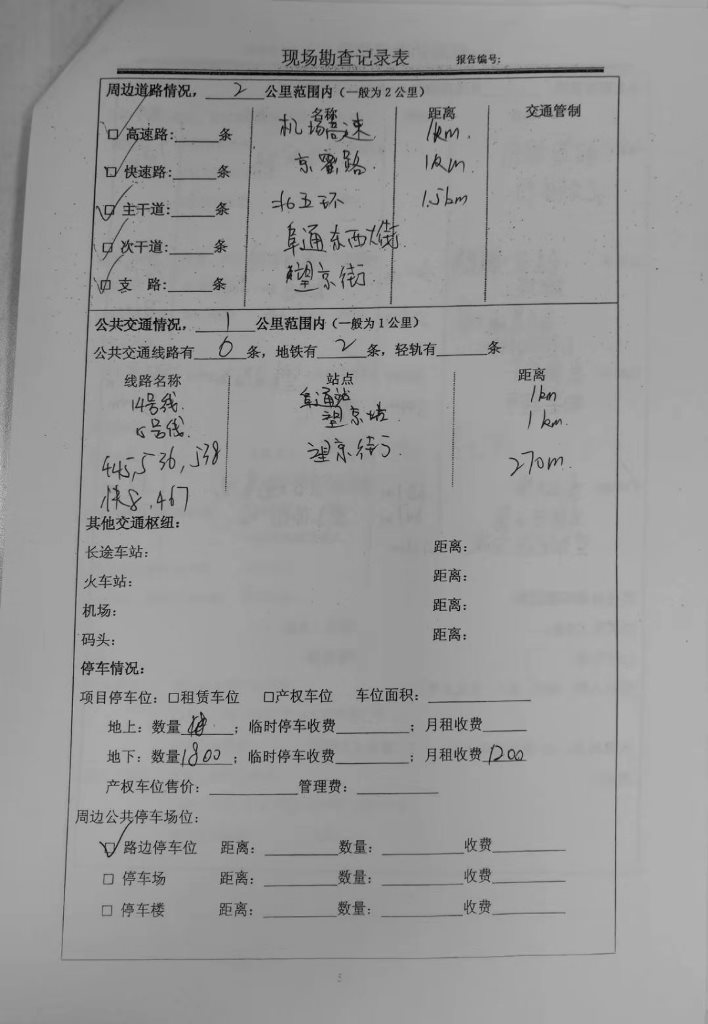 现场勘查记录表 报告编号:
周边道路情况，2公里范围内（一般为2公里）
名称 距离 交通管制
☑ 高速路:____条 机场高速 1km.
☑ 快速路:____条 京密路 1km.
☑ 主干道:____条 北五环 1.5km
☑ 次干道:____条 阜通东西大街
☑ 支 路:____条 望京街
公共交通情况，1公里范围内（一般为1公里）
公共交通线路有6条，地铁有2条，轻轨有____条
线路名称 站点 距离
14号线. 阜通站 1km
15号线. 望京站 1km.
445,536,538 望京街 270m.
快8,467
其他交通枢纽：
长途车站: 距离：
火车站: 距离：
机场: 距离：
码头: 距离：
停车情况:
项目停车位: □租赁车位 □产权车位 车位面积:________
地上：数量____；临时停车收费________；月租收费____
地下：数量1800；临时停车收费________；月租收费1200
产权车位售价：________管理费：________
周边公共停车场位:
☑ 路边停车位 距离：________数量：________收费________
□ 停车场 距离：________数量：________收费________
□ 停车楼 距离：________数量：________收费________